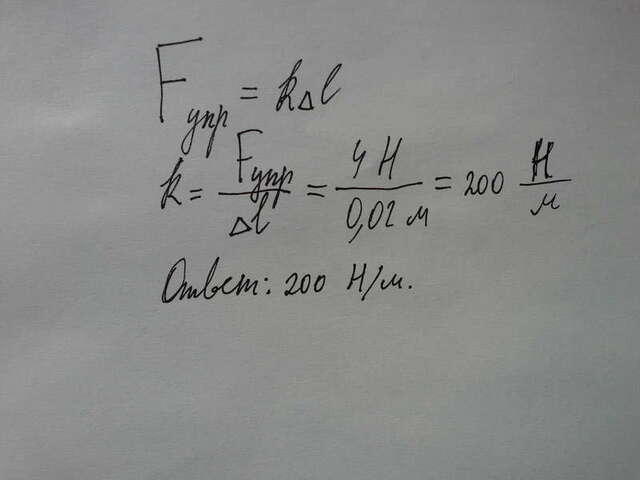 Fупр = kΔl
k = Fупр/Δl = 4 Н/0,02 м = 200 Н/м
Ответ: 200 Н/м.